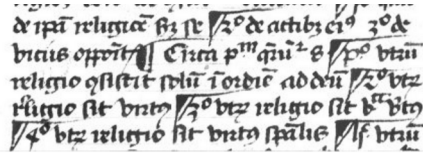 de ipā religiōe scđ se ¶ 2º de actibȝ eiꝰ 3º de
viciis oppoīt ¶ Circa pᵐ q̄rūt² 8 ¶ pº vtrū
religio ꝯsistit solū ī ordiē ad deū ¶ 2º vtȝ
religio sit virtꝰ ¶ 3º vtȝ religio sit vna vtꝰ
¶ 4º vtȝ religio sit virtꝰ sp̄alis ¶ vtrū